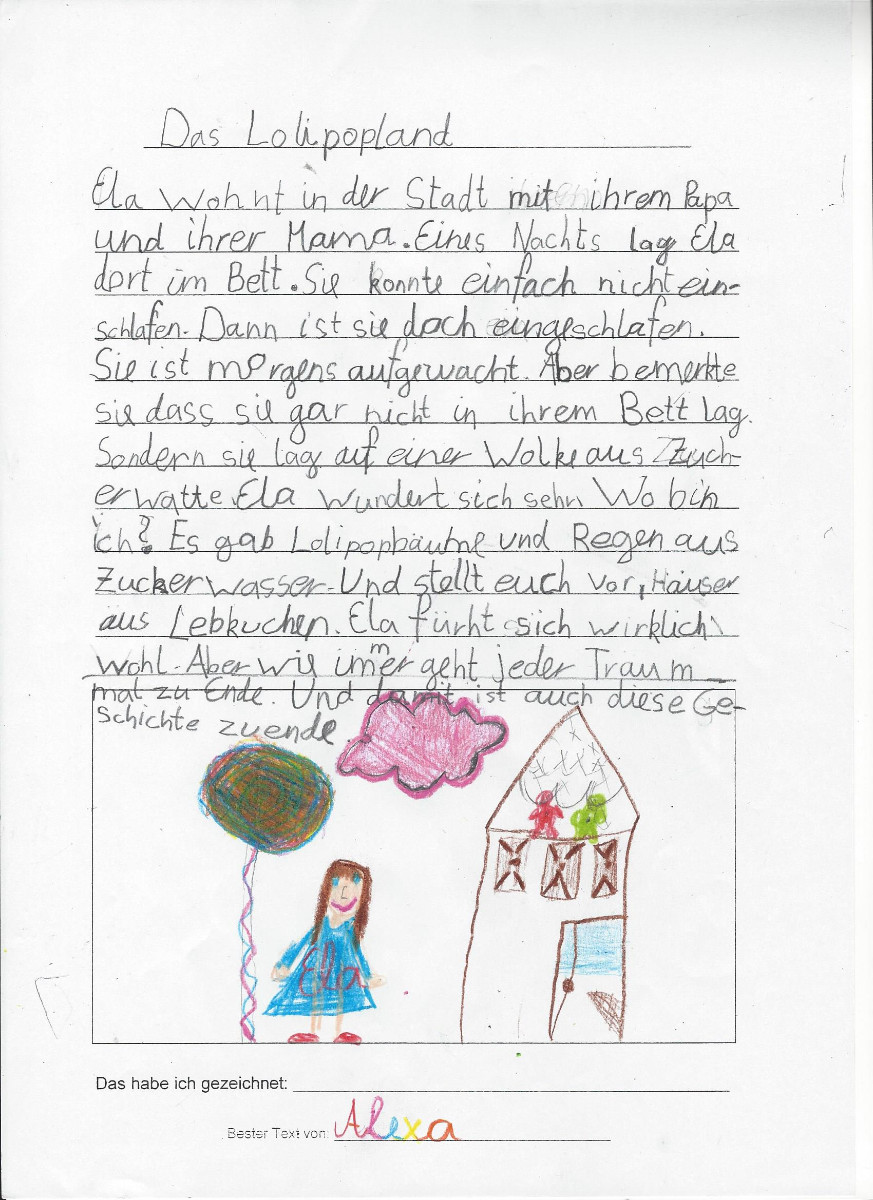 Das Lolipopland
Ela wohnt in der Stadt mit ihrem Papa
und ihrer Mama. Eines Nachts lag Ela
dort im Bett. Sie konnte einfach nicht ein-
schlafen. Dann ist sie doch eingeschlafen.
Sie ist morgens aufgewacht. Aber bemerkte
sie dass sie gar nicht in ihrem Bett lag.
Sondern sie lag auf einer Wolke aus Zuch-
erwatte. Ela wundert sich sehr. Wo bin
ich? Es gab Lolipopbäume und Regen aus
Zuckerwasser. Und stellt euch vor, Häuser
aus Lebkuchen. Ela fürht sich wirklich
wohl. Aber wie immer geht jeder Traum
mal zu Ende. Und damit ist auch diese Ge-
schichte zuende
Ela
Das habe ich gezeichnet:
Bester Text von: Alexa